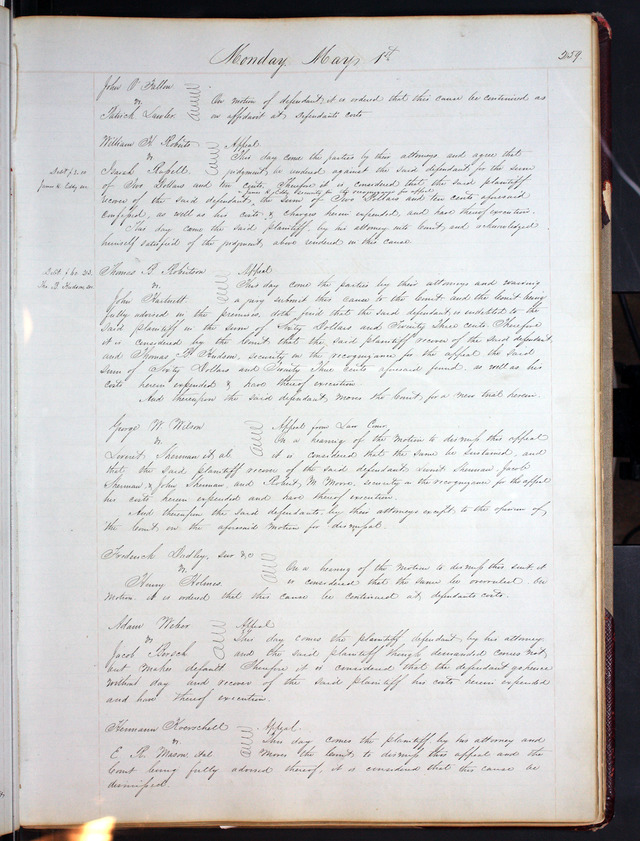 Monday May 1st 259.
John O Fallon
vs
Patrick Lawler
On motion of defendant, it is ordered that this cause be continued as
on affidavit at defendants costs
William H Roberts Appeal
vs This day come the parties by their attorneys and agree that
Isaiah judgment be rendered against the said defendant for the sum
of Two Dollars and ten cents. Therefore it is considered that the said plaintiff
security in the recognizance for appeal
recover of the said defendant, the sum of Two Dollars and ten cents aforesaid
confessed, as well as his costs & charges herein expended, and have thereof execution.
This day come the said plaintiff, by his attorney into Court, and acknowledged
himself satisfied of the judgment, above rendered in this cause
Debt $2.10
Debt $60.23
Thomas R Robertson Appeal
vs. This day come the parties by their attorneys and waiving
John a jury submit this cause to the Court and the Court being
fully advised in the premises, doth find that the said defendant, is indebted to the
said plaintiff in the sum of Sixty Dollars and Twenty Three cents. Therefore
it is considered by the Court, that the said plaintiff recover of the said defendant
and Thomas security in the recognizance for the appeal the said
sum of Sixty Dollars and Twenty Three cents aforesaid found as well as his
costs herein expended & have thereof execution
And thereupon the said defendant, moves the Court, for a new trial herein.
George W. Wilson Appeal from Law Com
vs. On a hearing of the motion to dismiss this appeal
Sherman et al. it is considered that the same be sustained, and
that, the said plaintiff recover of the said defendant Sherman Jacob
Sherman & John Sherman and Robert M Moore, security in the recognizance for the appeal
his costs herein expended and have thereof execution.
And thereupon the said defendants by their attorneys except to the opinion of
the Court, on the aforesaid motion for dismissal.
Frederick Dudley, &c
vs On a hearing of the motion to dismiss this suit it
Henry Holmes. is considered that the same be overruled. On
motion it is ordered that this cause be continued at defendants costs.
Adam Weber Appeal
vs This day comes the plaintiff, defendant, by his attorney
Jacob and the said plaintiff though demanded comes not,
but makes default Therefore it is considered that the defendant go hence
without day and recover of the said plaintiff his costs herein expended
and have thereof execution.
Hermann Appeal
vs This day comes the plaintiff by his attorney and
E. R. Mason et al moves the Court to dismiss this appeal and the
Court being fully advised thereof, it is considered that this cause be
dismissed.